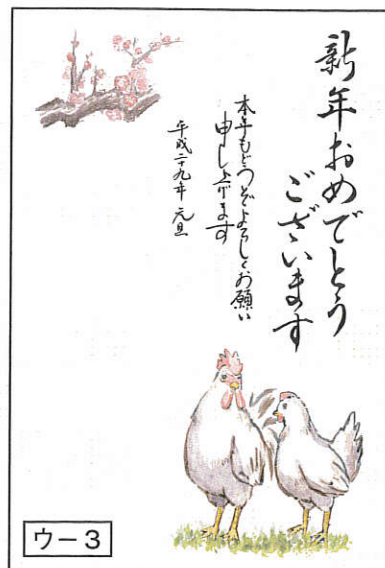 新年おめでとう
ございます
本年もどうぞよろしくお願い
申し上げます
平成二十九年 元旦
ウー3